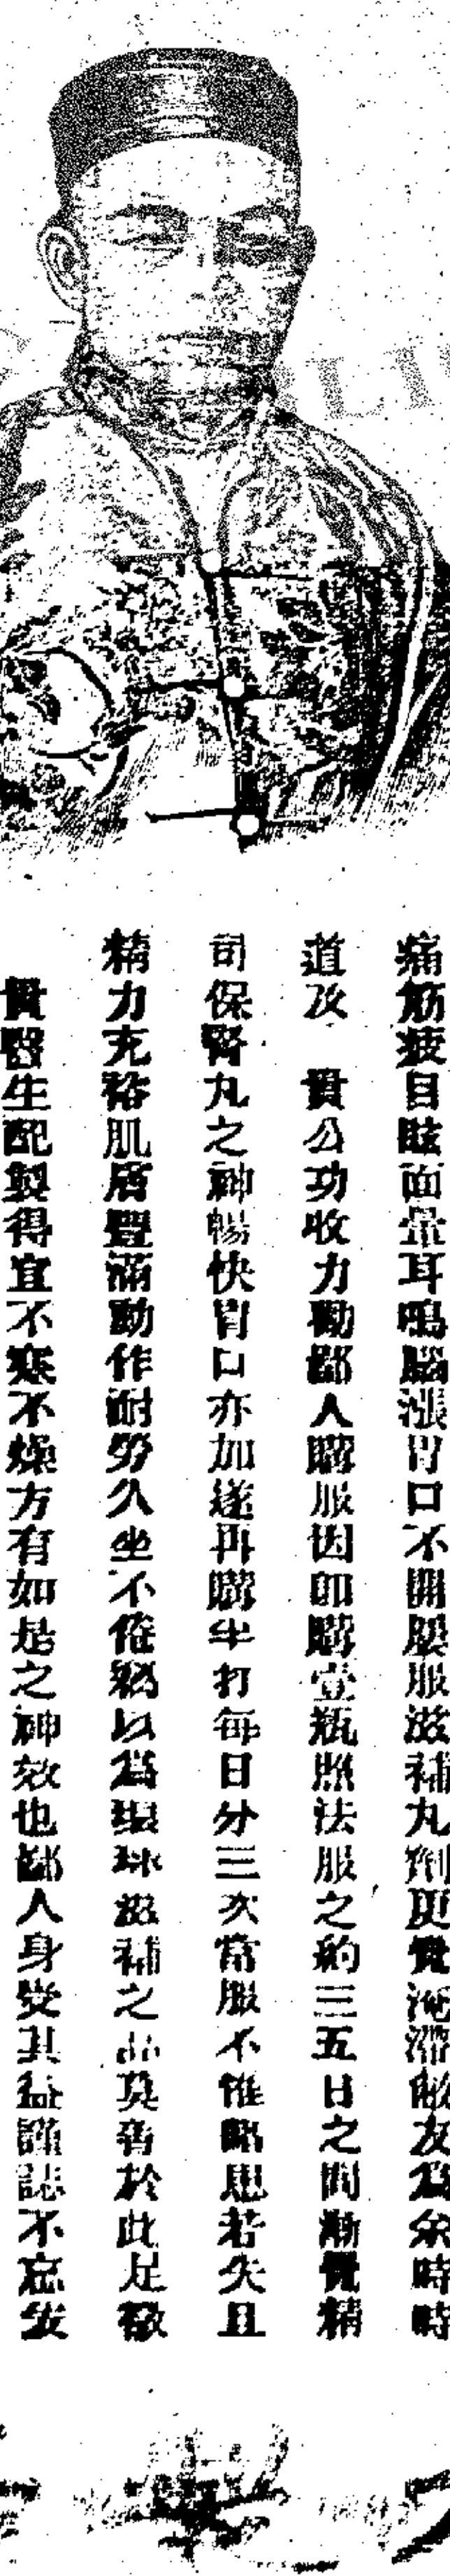 痛筋疲目眩面暈耳鳴腦漲胃口不開屢服滋補丸劑更覺淹滯敝友為余時時
道及　貴公功收力勸鄙人購服因即購壹瓶照法服之約三五日之間漸覺精
司保腎丸之神暢快胃口亦加遂再購半打每日分三次常服不惟略思若失且
精力充裕肌膚豐滿動作耐勞久坐不倦竊以為環球滋補之品莫善於此足徵
貴醫生配製得宜不寒不燥方有如是之神效也鄙人身受其益謹誌不忘